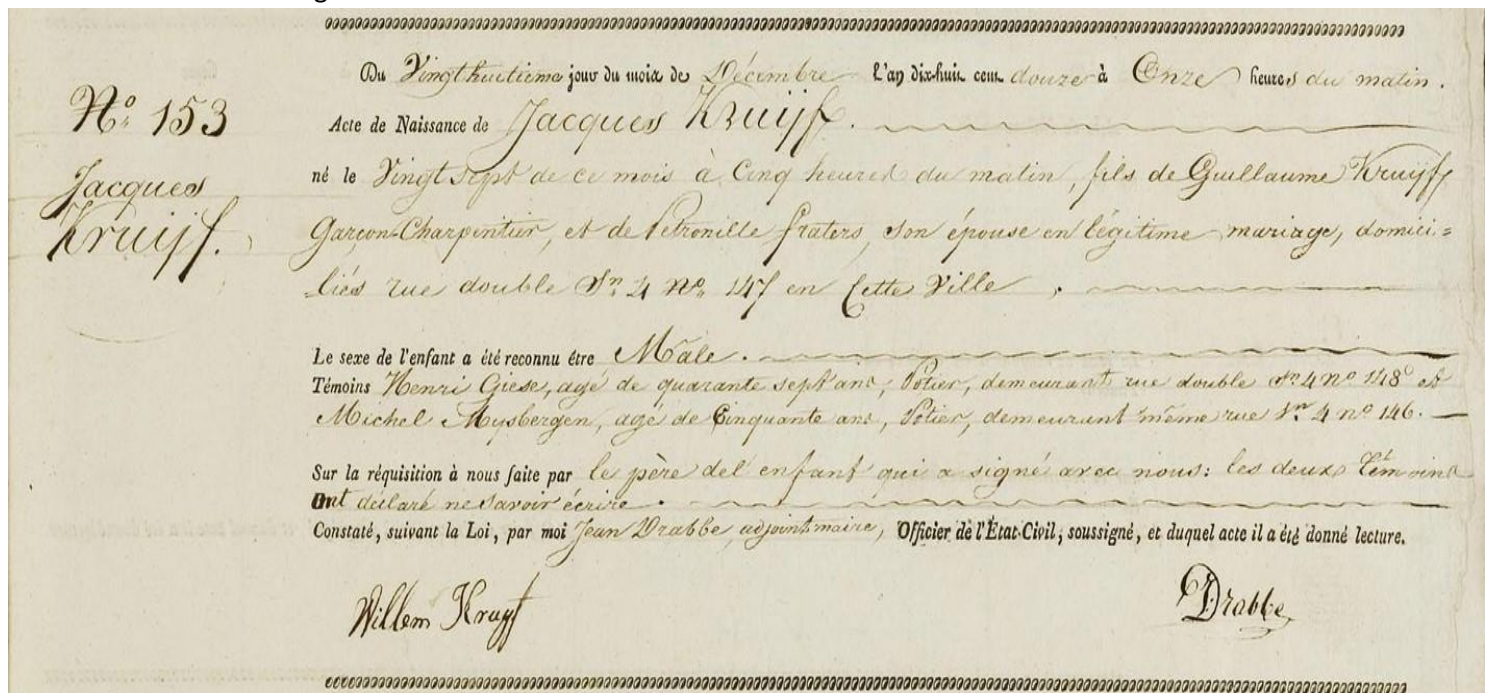 Du Vingt huitieme jour du mois de Décembre l'an dix-huit cent douze à Onze heures du matin.
N.º 153
Acte de Naissance de Jacques Kruijff.
Jacques
Kruijf.
né le Vingt sept de ce mois à Cinq heures du matin, fils de Guillaume Kruijff
Garçon-Charpentier, et de Petronille fraters, son épouse en légitime mariage, domici-
liés rue double Sn. 4 No. 147 en Cette Ville.
Le sexe de l'enfant a été reconnu être Mâle.
Témoins Henri Giese, agé de quarante sept ans, Potier, demeurant rue double Sn. 4 no. 148 et
Michel Mysbergen, agé de Cinquante ans, Potier, demeurant même rue Sn. 4 no. 146.
Sur la réquisition à nous faite par le père de l'enfant qui a signé avec nous: les deux témoins
Ont déclaré ne savoir écrire.
Constaté, suivant la Loi, par moi Jean Drabbe, adjoint maire, Officier de l'État-Civil; soussigné, et duquel acte il a été donné lecture.
Willem Kruyff
Drabbe